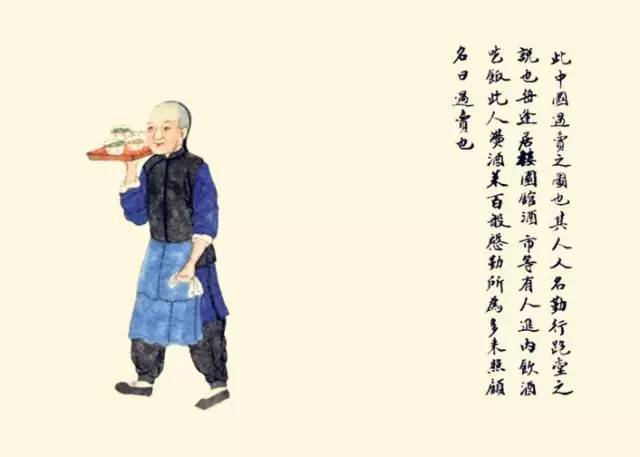 此中國過賣之圖也其人人名勤行跑堂之
說也每逢居樓園館酒市等有人進内飲酒
吃飯此人酒菜百般慇勤所為多来照顧
名曰過賣也